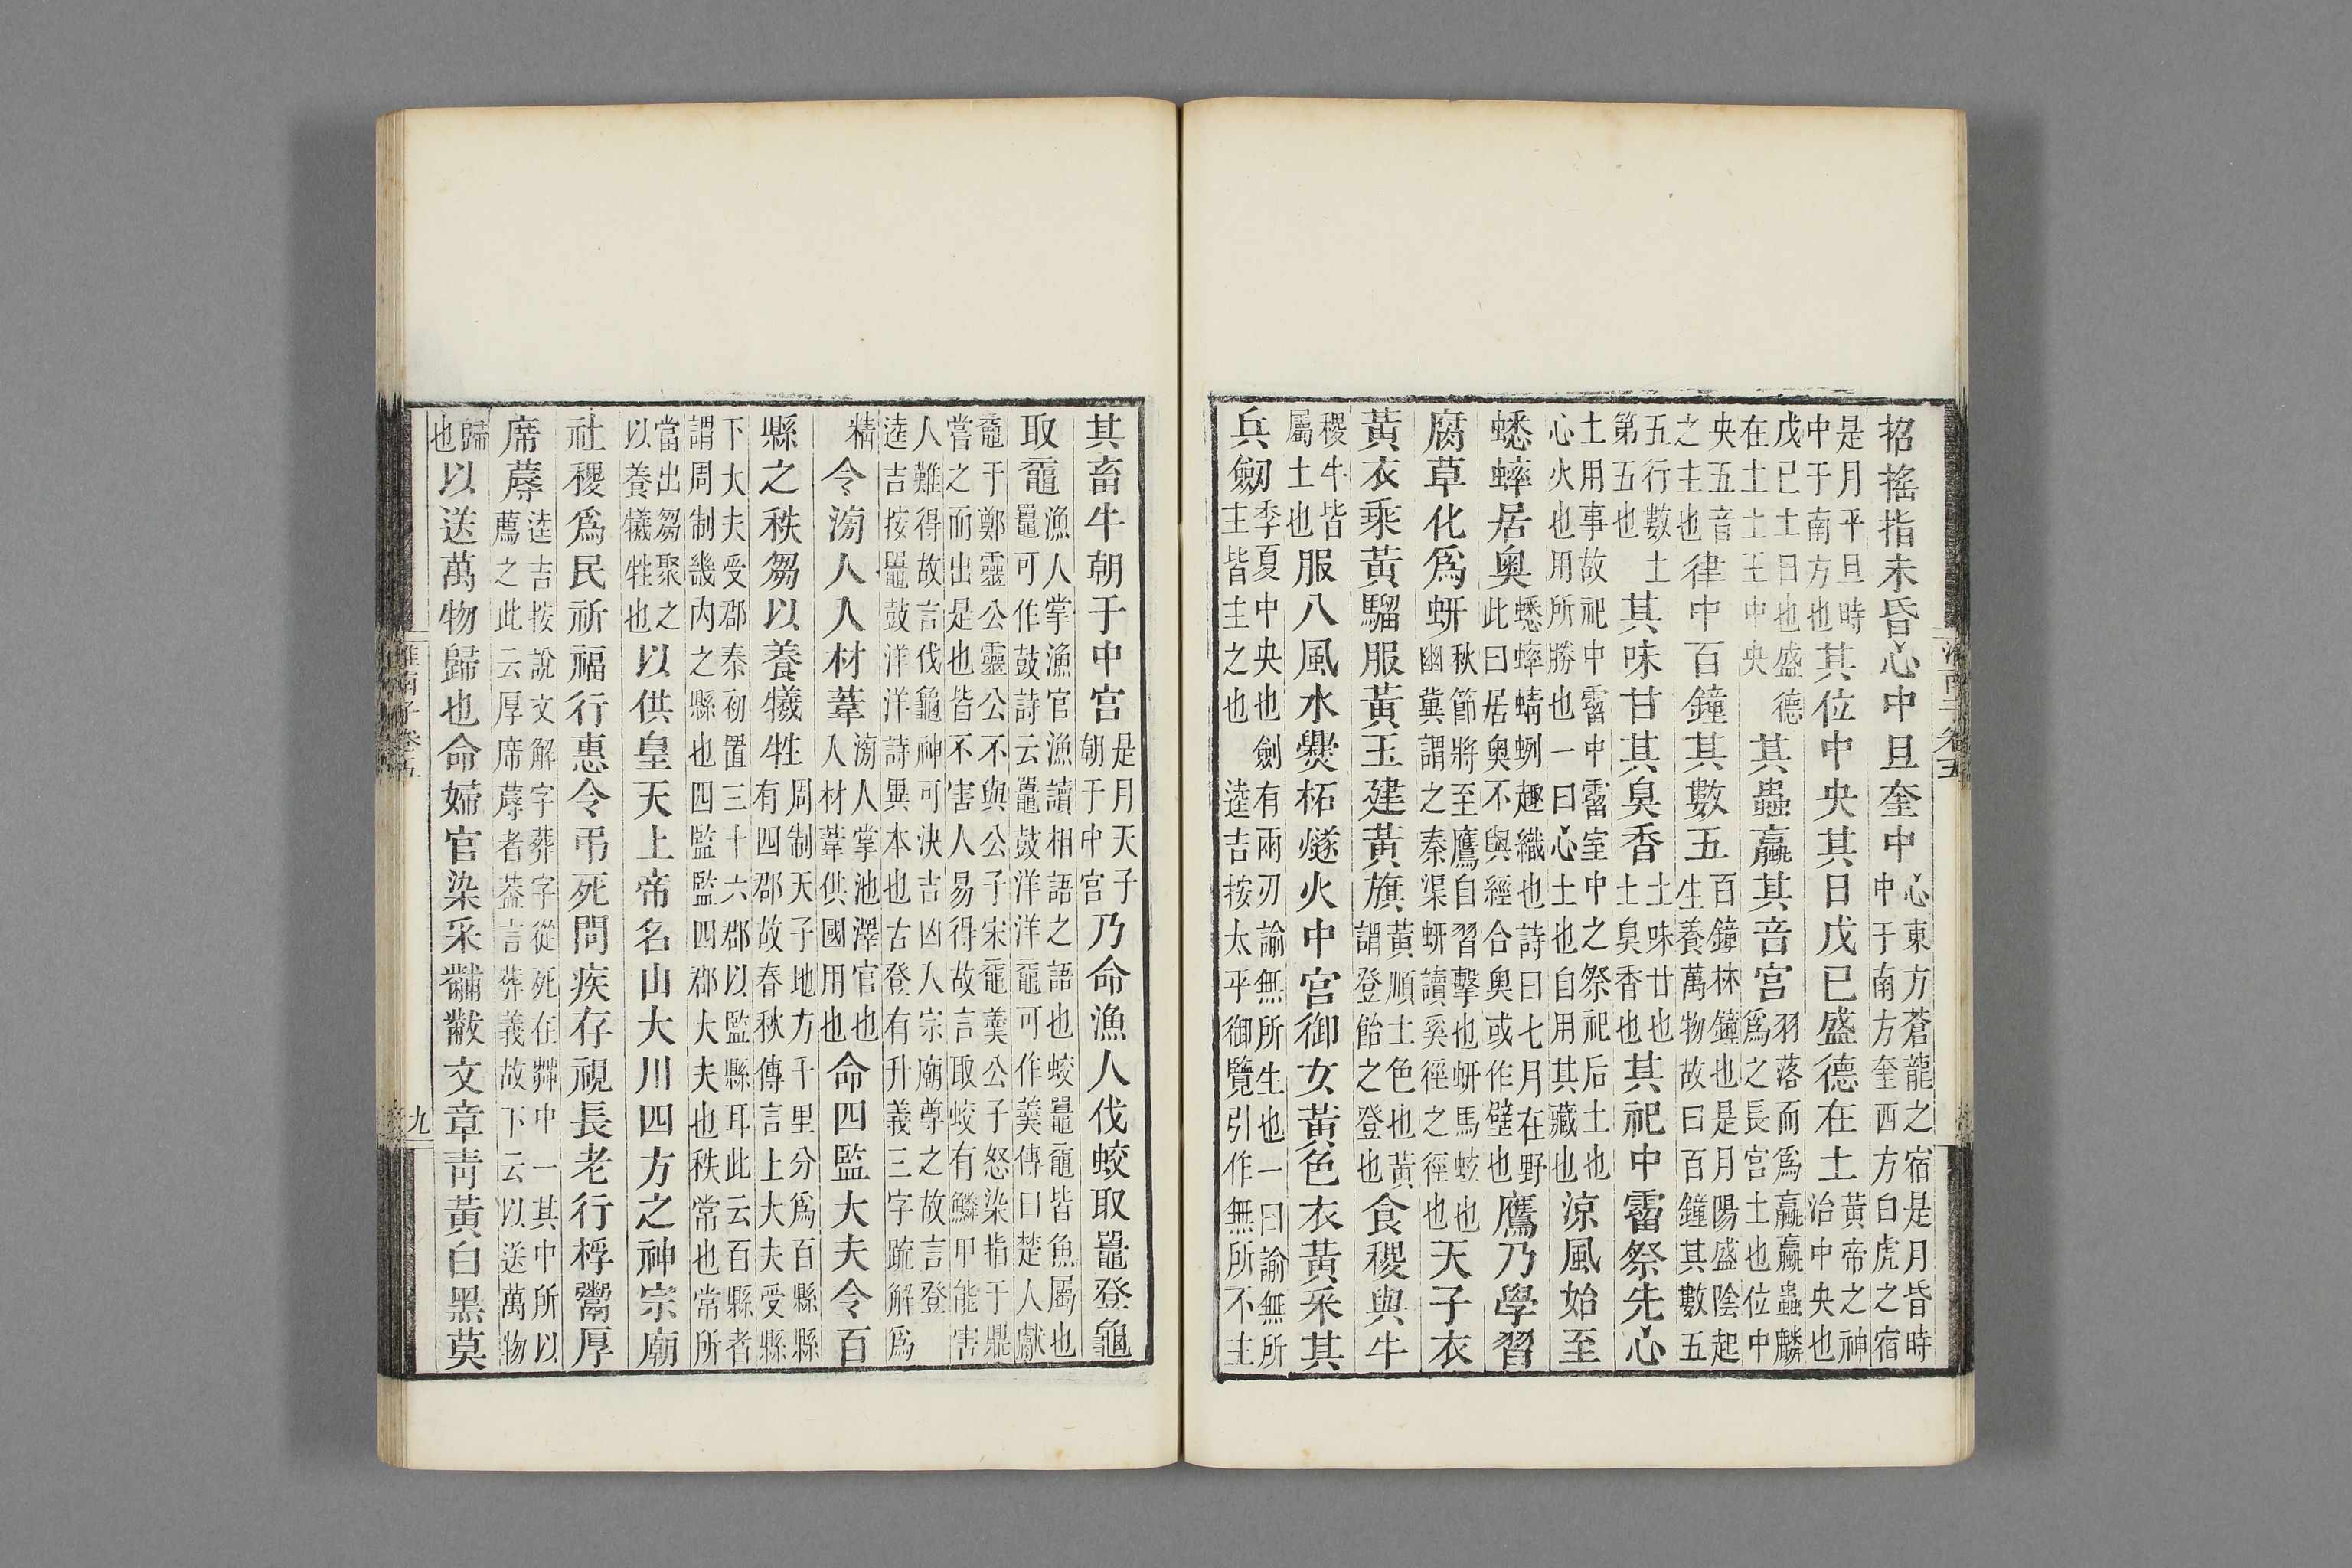 招搖指未昏心中旦奎中心東方蒼龍之宿是月昏時中于南方奎西方白虎之宿
是月平旦時中于南方也其位中央其日戊已盛德在土黃帝之神治中央也
戊已土日也盛德在土土王中央其蟲蠃其音宮羽落而爲蠃蠃蟲麟爲之長宮土也位中
央五音之主也律中百鐘其數五百鐘林鐘也是月陽盛陰起生養萬物故曰百鐘其數五
五行數土第五也其味甘其臭香土味甘也土臭香也其祀中霤祭先心
土用事故祀中霤中霤室中之祭祀后土也心火也用所勝也一曰心土也自用其藏也涼風始至
蟋蟀居奧蟋蟀蜻蛚趣織也詩曰七月在野此曰居奧不與經合奧或作壁也鷹乃學習
腐草化爲蚈秋節將至鷹自習擊也蚈馬蚿也幽冀謂之秦渠蚈讀奚徑之徑也天子衣
黃衣乘黃騮服黃玉建黃旗黃順土色也黃謂登飴之登也食稷與牛
稷牛皆屬土也服八風水爨柘燧火中宮御女黃色衣黃采其
兵劒季夏中央也劒有兩刃諭無所生也一曰諭無所主皆主之也逵吉按太平御覽引作無所不主
其畜牛朝于中宮是月天子朝于中宮乃命漁人伐蛟取鼉登龜
取黿漁人掌漁官漁讀相語之語也蛟鼉黿皆魚屬也鼉可作鼓詩云鼉鼓洋洋黿可作羹傳曰楚人獻
黿于鄭靈公靈公不與公子宋黿羹公子怒染指于鼎嘗之而出是也皆不害人易得故言取蛟有鱗甲能害
人難得故言伐龜神可決吉凶入宗廟尊之故言登逵吉按鼉鼓洋洋詩異本也古登有升義三字疏解爲
精令滂人入材葦滂人掌池澤官也入材葦供國用也命四監大夫令百
縣之秩芻以養犧牲周制天子地方千里分爲百縣縣有四郡故春秋傳言上大夫受縣
下大夫受郡秦初置三十六郡以監縣耳此云百縣者謂周制畿内之縣也四監監四郡大夫也秩常也常所
當出芻聚之以養犧牲也以供皇天上帝名山大川四方之神宗廟
社稷爲民祈福行惠令弔死問疾存視長老行桴鬻厚
席蓐逵吉按說文解字葬字從死在茻中一其中所以薦之此云厚席蓐者葢言葬義故下云以送萬物
歸也以送萬物歸也命婦官染采黼黻文章靑黃白黑莫
淮南子卷五
九